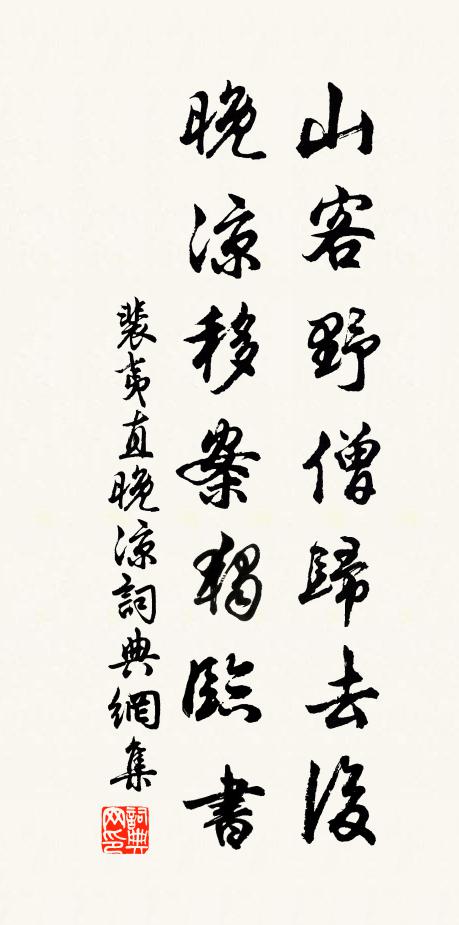 山客野僧歸去後
晚涼移案獨臨書
裴夷直晚涼詞典網集
詞典網印